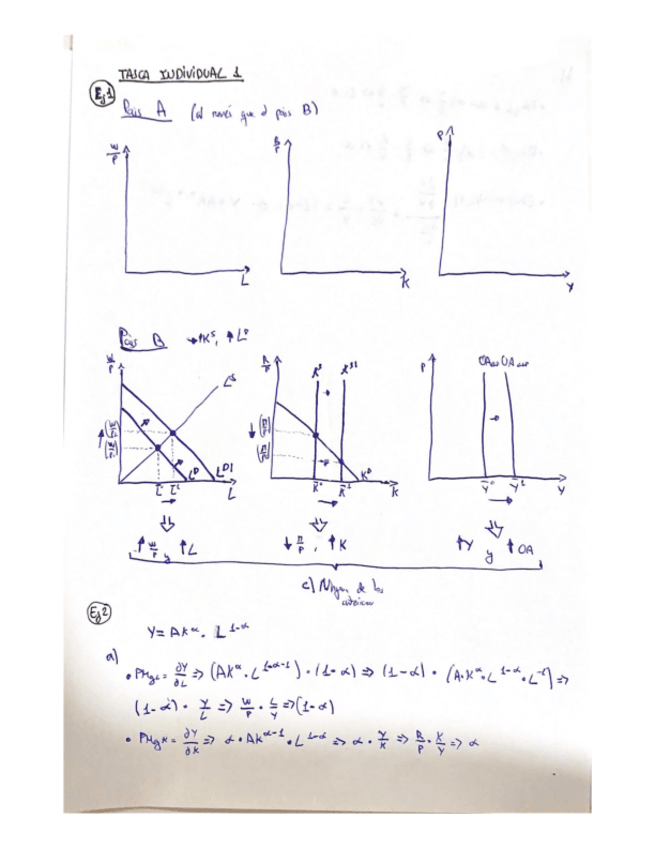 TASCA INDIVIDUAL 1
Ej 1
País A (al revés que el país B)
W/P L
R/P K
P Y
País B → ↑K^S, ↑L^D
W/P L^S L^D L^D1 L
↑ (W/P) (W/P)
R/P K^S K^S1 K^D K
↓ (R/P) (R/P)
P OA OA Y
↑ W/P y ↑L
↓ R/P, ↑K
↑Y y ↑OA
c) Ninguna de las anteriores
Ej 2
Y = AK^α · L^1-α
a)
• PMgL = ∂Y/∂L => (AK^α · L^1-α-1) · (1-α) => (1-α) · (A·K^α · L^1-α · L^-1) =>
(1-α) · Y/L => W/P · L/Y => (1-α)
• PMgK = ∂Y/∂K => α · AK^α-1 · L^1-α => α · Y/K => R/P · K/Y => α